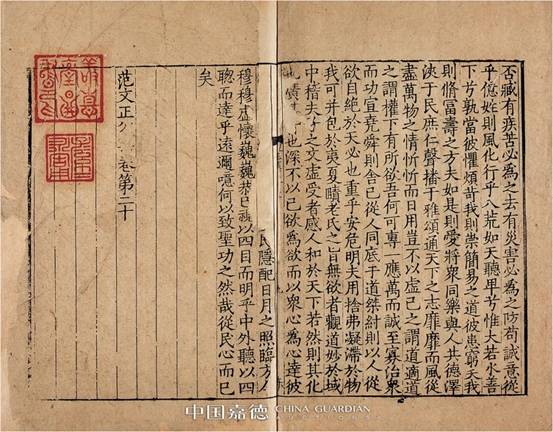 否臧有疾苦必為之去有災害必為之防苟誠意從
乎億姓則風化行乎八荒如天聽卑兮惟大若水善
下兮孰當彼懼煩苛我則崇簡易之道彼患窮夭我
則脩富壽之方夫如是則愛將衆同樂與人共德澤
浹于民庶仁聲播于雅頌通天下之志靡靡而風從
盡萬物之情忻忻而日用豈不以虛己之謂道適道
之謂權下有所欲吾何可專一應萬而誠至寡治衆
而功宣堯舜則舍己從人同底于道桀紂則以人從
欲自絕於天必也重乎安危明夫用捨弗凝滯於物
我可并包於夷夏賾老氏之旨無欲者觀道妙於域
中稽夫子之文虛受者感人和於天下若然則其化
也深不以己欲為欲而以衆心為心達彼
民隱配日月之照臨方
穆穆虛懷巍巍恭己視以四目而明乎中外聽以四
聰而達乎遠邇噫何以致聖功之然哉從民心而已
矣
范文正卷第二十
中国嘉德 CHINA GUARDIAN